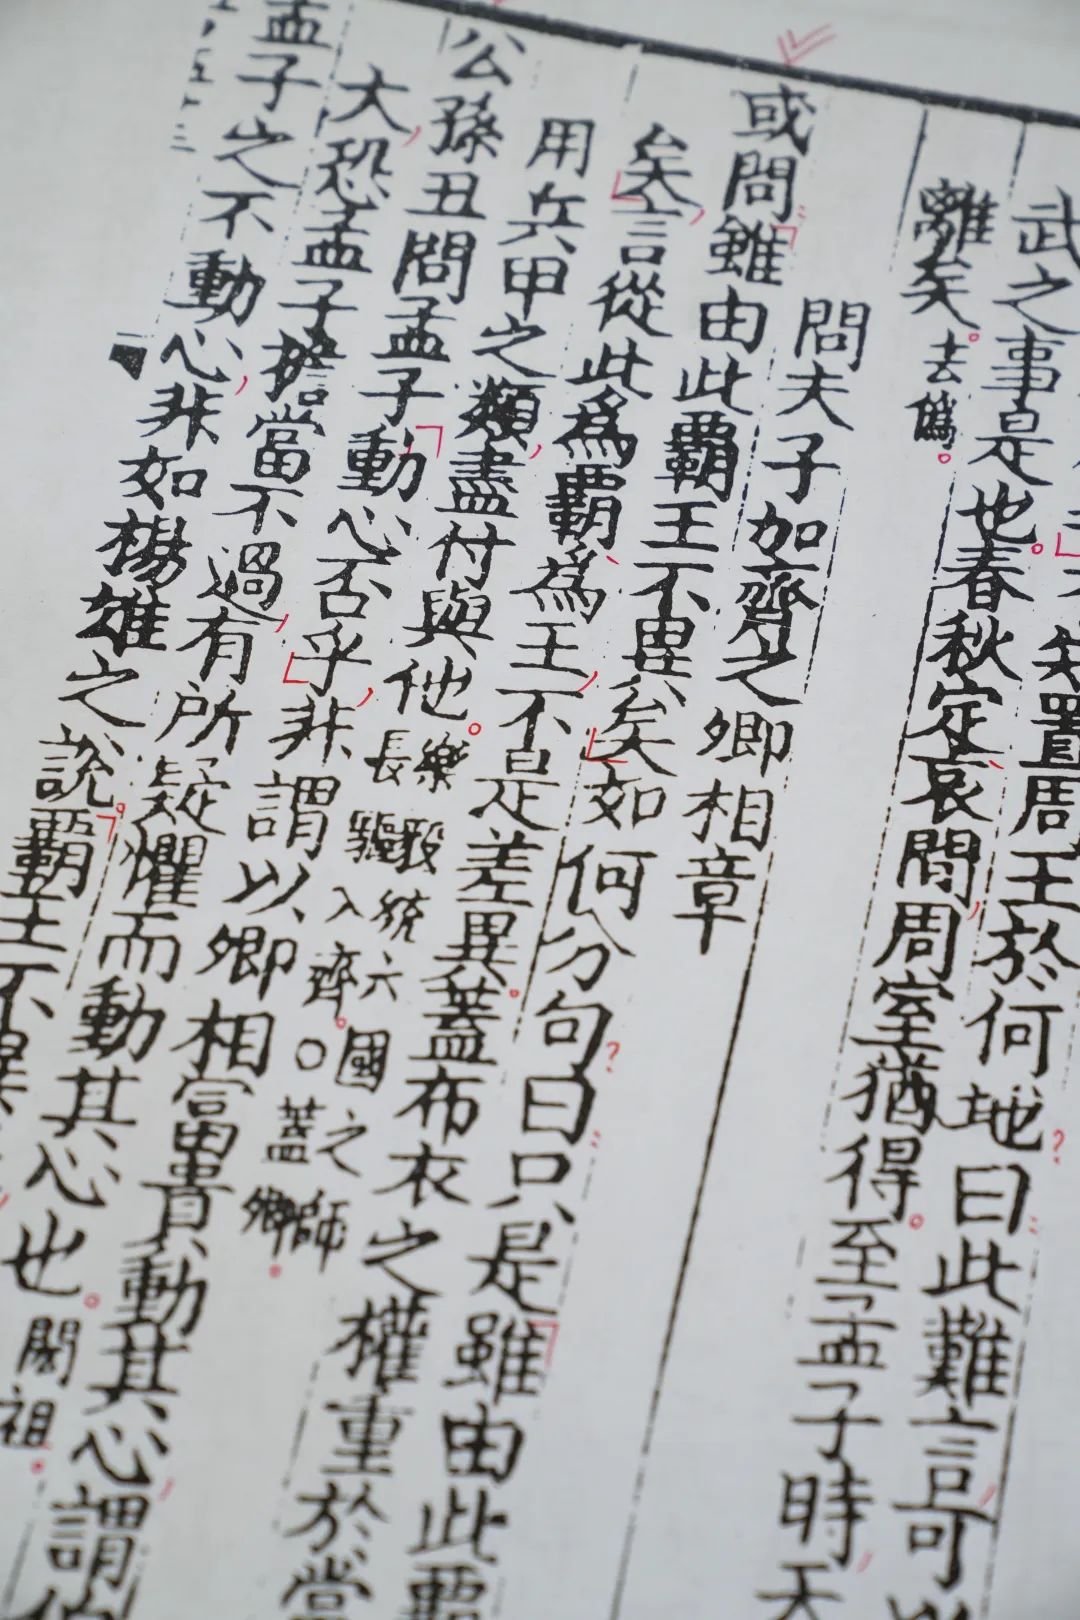 知置周王於何地曰此難言可
武之事是也春秋定哀間周室猶得至孟子時天
離矣。去偽。
問夫子加齊之卿相章
或問雖由此霸王不異矣如何分句曰只是雖由此霸
矣言從此為霸為王不是差異蓋布衣之權重於當
用兵甲之類盡付與他。樂毅統六國之師長驅入齊。○蓋卿。
公孫丑問孟子動心否乎非謂以卿相富貴動其心謂伯
大恐孟子擔當不過有所疑懼而動其心也。閎祖。
孟子之不動心非如楊雄之說。霸王不異
五十三